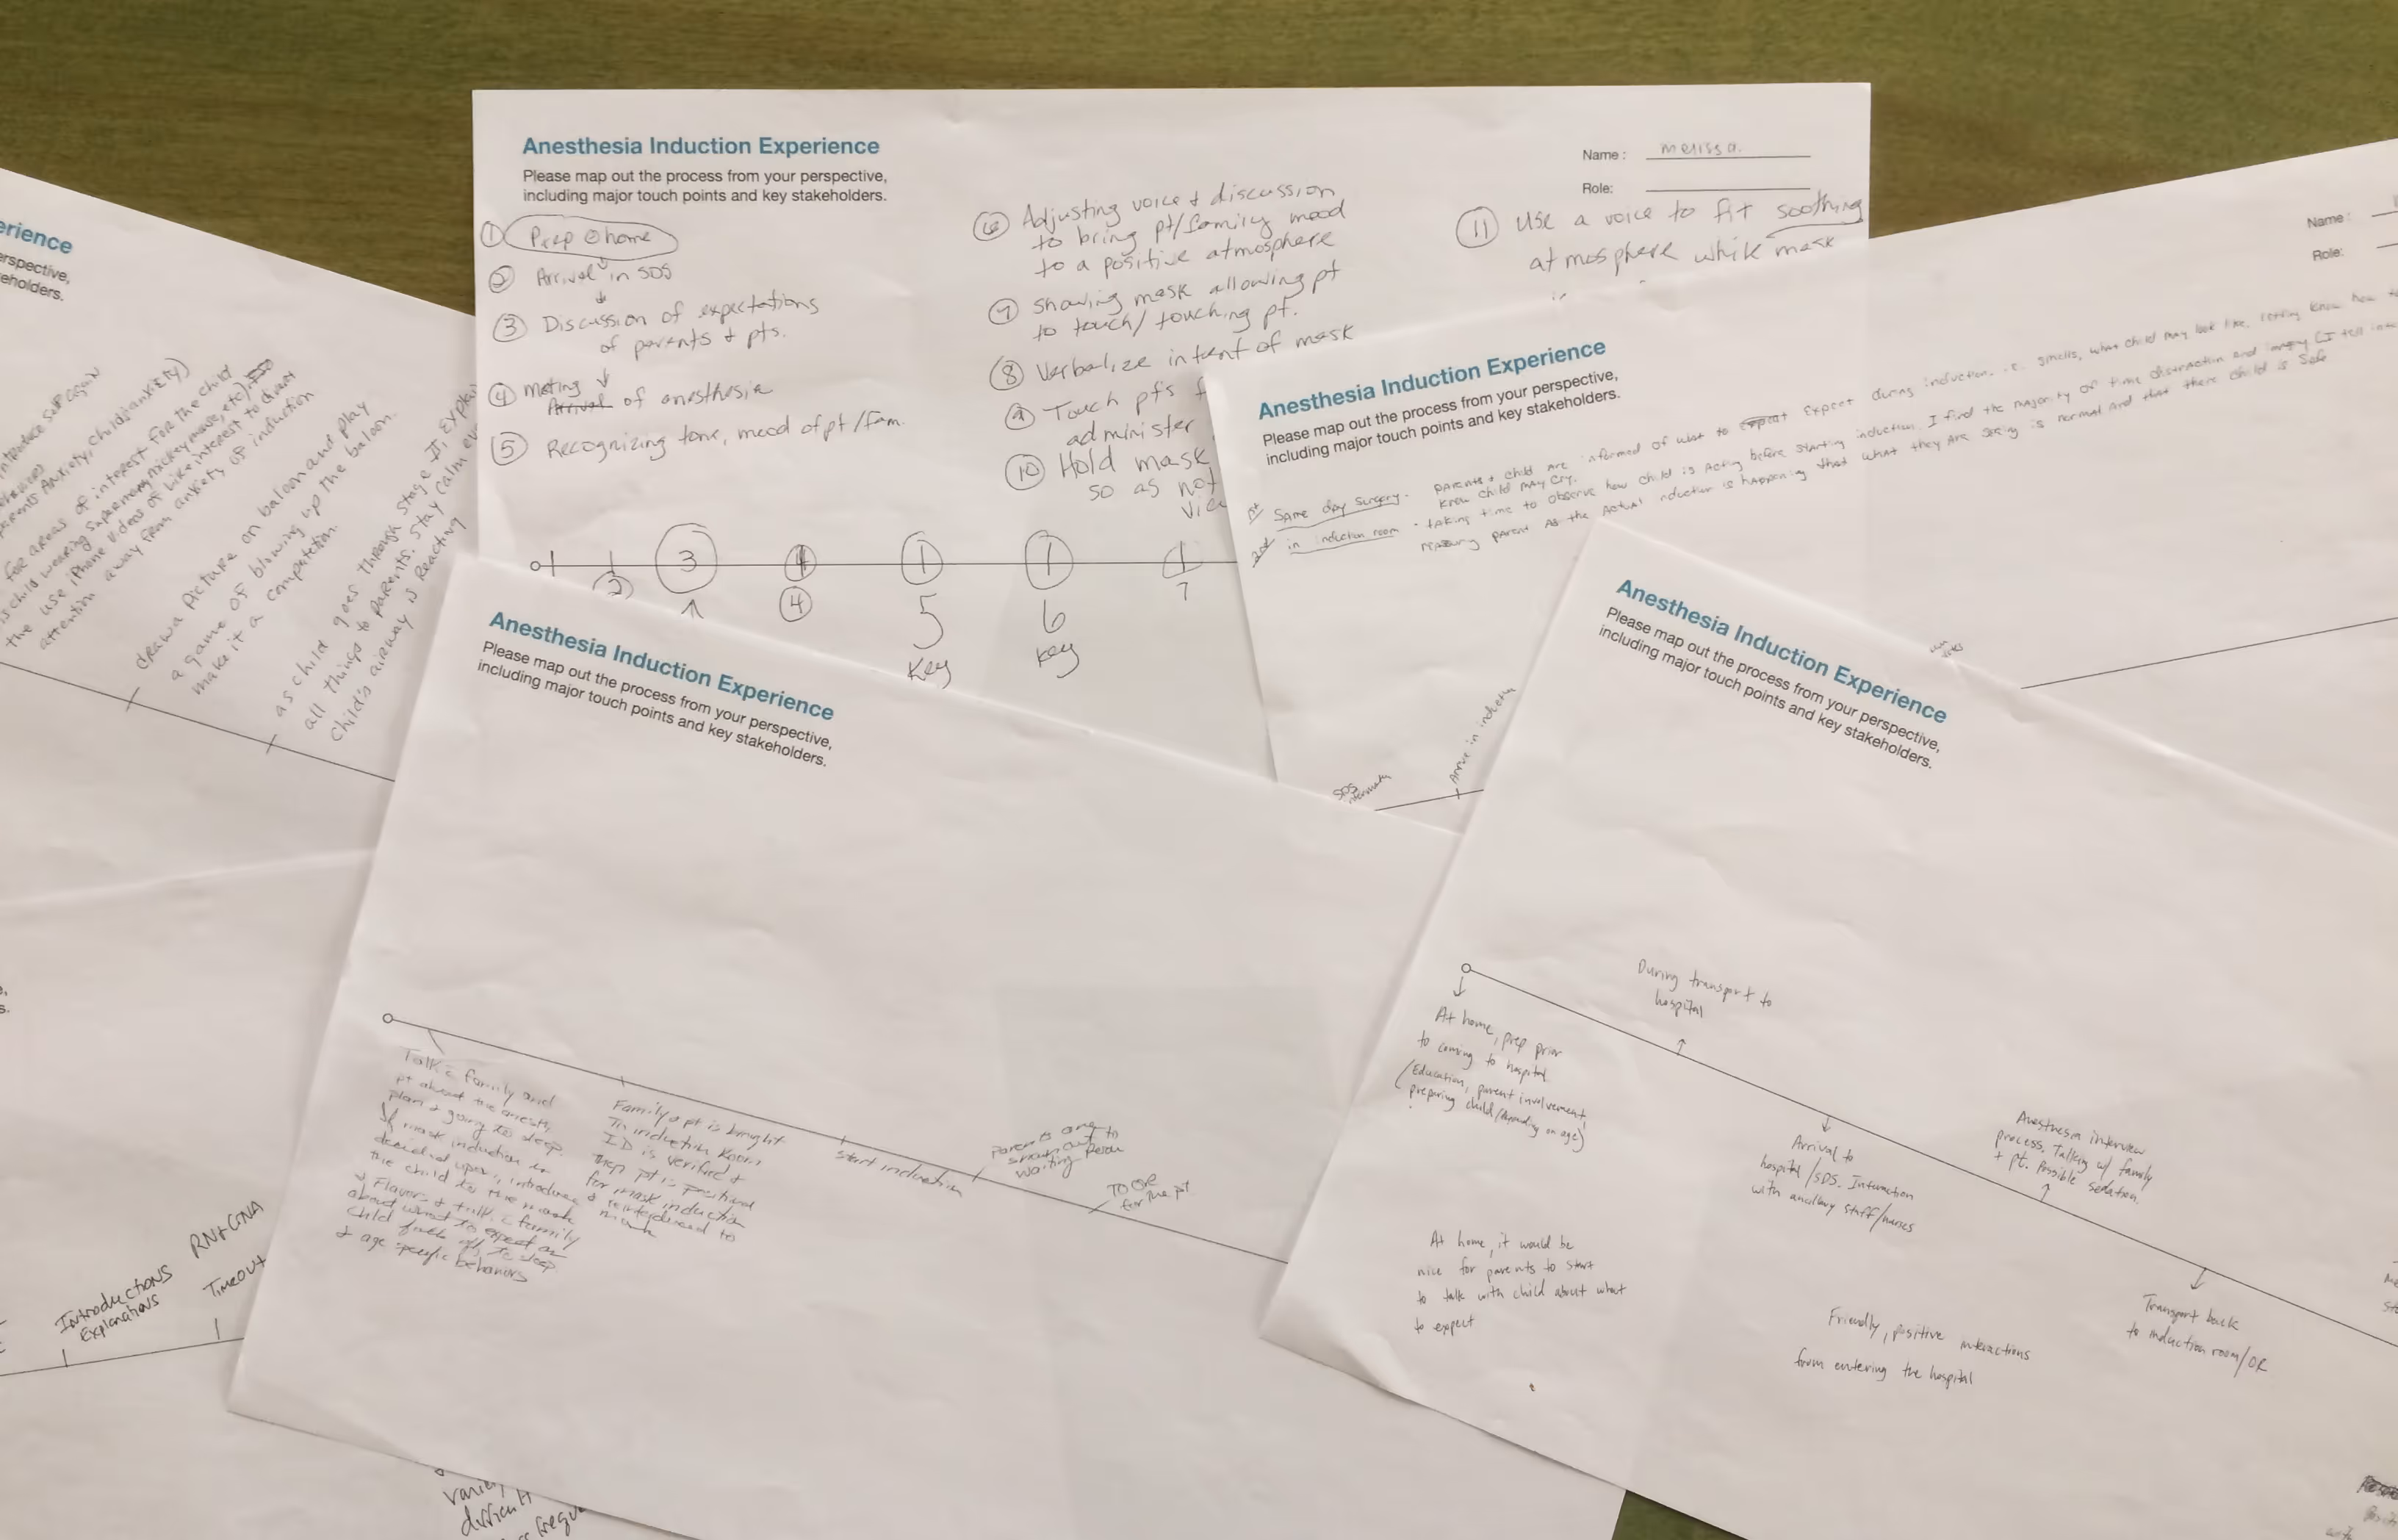 Anesthesia Induction Experience
Please map out the process from your perspective,
including major touch points and key stakeholders.
Name: melissa.
Role:
① Prep @ home
② Arrival in SDS
③ Discussion of expectations
of parents + pts.
④ Meting
Arrival of anesthesia
⑤ Recognizing tone, mood of pt/fam.
⑥ Adjusting voice + discussion
to bring pt/family mood
to a positive atmosphere
⑦ showing mask allowing pt
to touch/touching pt.
⑧ Verbalize intent of mask
⑨ Touch pt's f
administer
⑩ Hold mask
so as not
vie
⑪ Use a voice to fit soothing
atmosphere while mask
2 3 4 5 6 7
Key Key
erience
erspective,
eholders.
introduce self again
parents Anxiety, child anxiety)
for areas of interest for the child
is child wearing superman, mickey mouse, etc).
the use iPhone videos of like interest to divert
attention away from anxiety of induction
draw a picture on baloon and play
a game of blowing up the baloon.
make it a competetion.
as child goes through stage II, Explain
all things to parents. Stay calm ev
child's airway is Reacting
Anesthesia Induction Experience
Please map out the process from your perspective,
including major touch points and key stakeholders.
Name:
Role:
1st Same day surgery. parents + child are informed of what to expect Expect during induction. i.e. smells, what child may look like, letting know how
know child may cry.
2nd in induction room • taking time to observe how child is acting before starting induction. I find the majority of time distraction and (I tell
parent as the actual induction is happening that what they are seeing is normal and that there child is safe
SDS
Arrive in induction
Anesthesia Induction Experience
Please map out the process from your perspective,
including major touch points and key stakeholders.
Talk c̄ family and
pt about the anesth.
plan + going to sleep.
If mask induction is
decided upon, introduce
the child to the mask
+ Flavors + talk c̄ family
about what to expect as
child falls off to sleep
+ age specific behaviors
Family + pt is brought
To induction Room
ID is verified +
then pt is positioned
for mask induction
+ reintroduced to
mask
start induction
Parents are
shown out to
waiting Room
TO OR
for the pt
Anesthesia Induction Experience
Please map out the process from your perspective,
including major touch points and key stakeholders.
During transport to
hospital
At home, prep prior
to coming to hospital.
(Education, parent involvement,
preparing child/depending on age)
Arrival to
hospital/SDS. Interaction
with ancillary staff/nurses
Anesthesia interview
process. Talking w/ family
+ pt. Possible sedation.
Transport back
to induction room/OR
At home, it would be
nice for parents to start
to talk with child about what
to expect
Friendly, positive interactions
from entering the hospital
Introductions
Explanations
RN + CRNA
Timeout